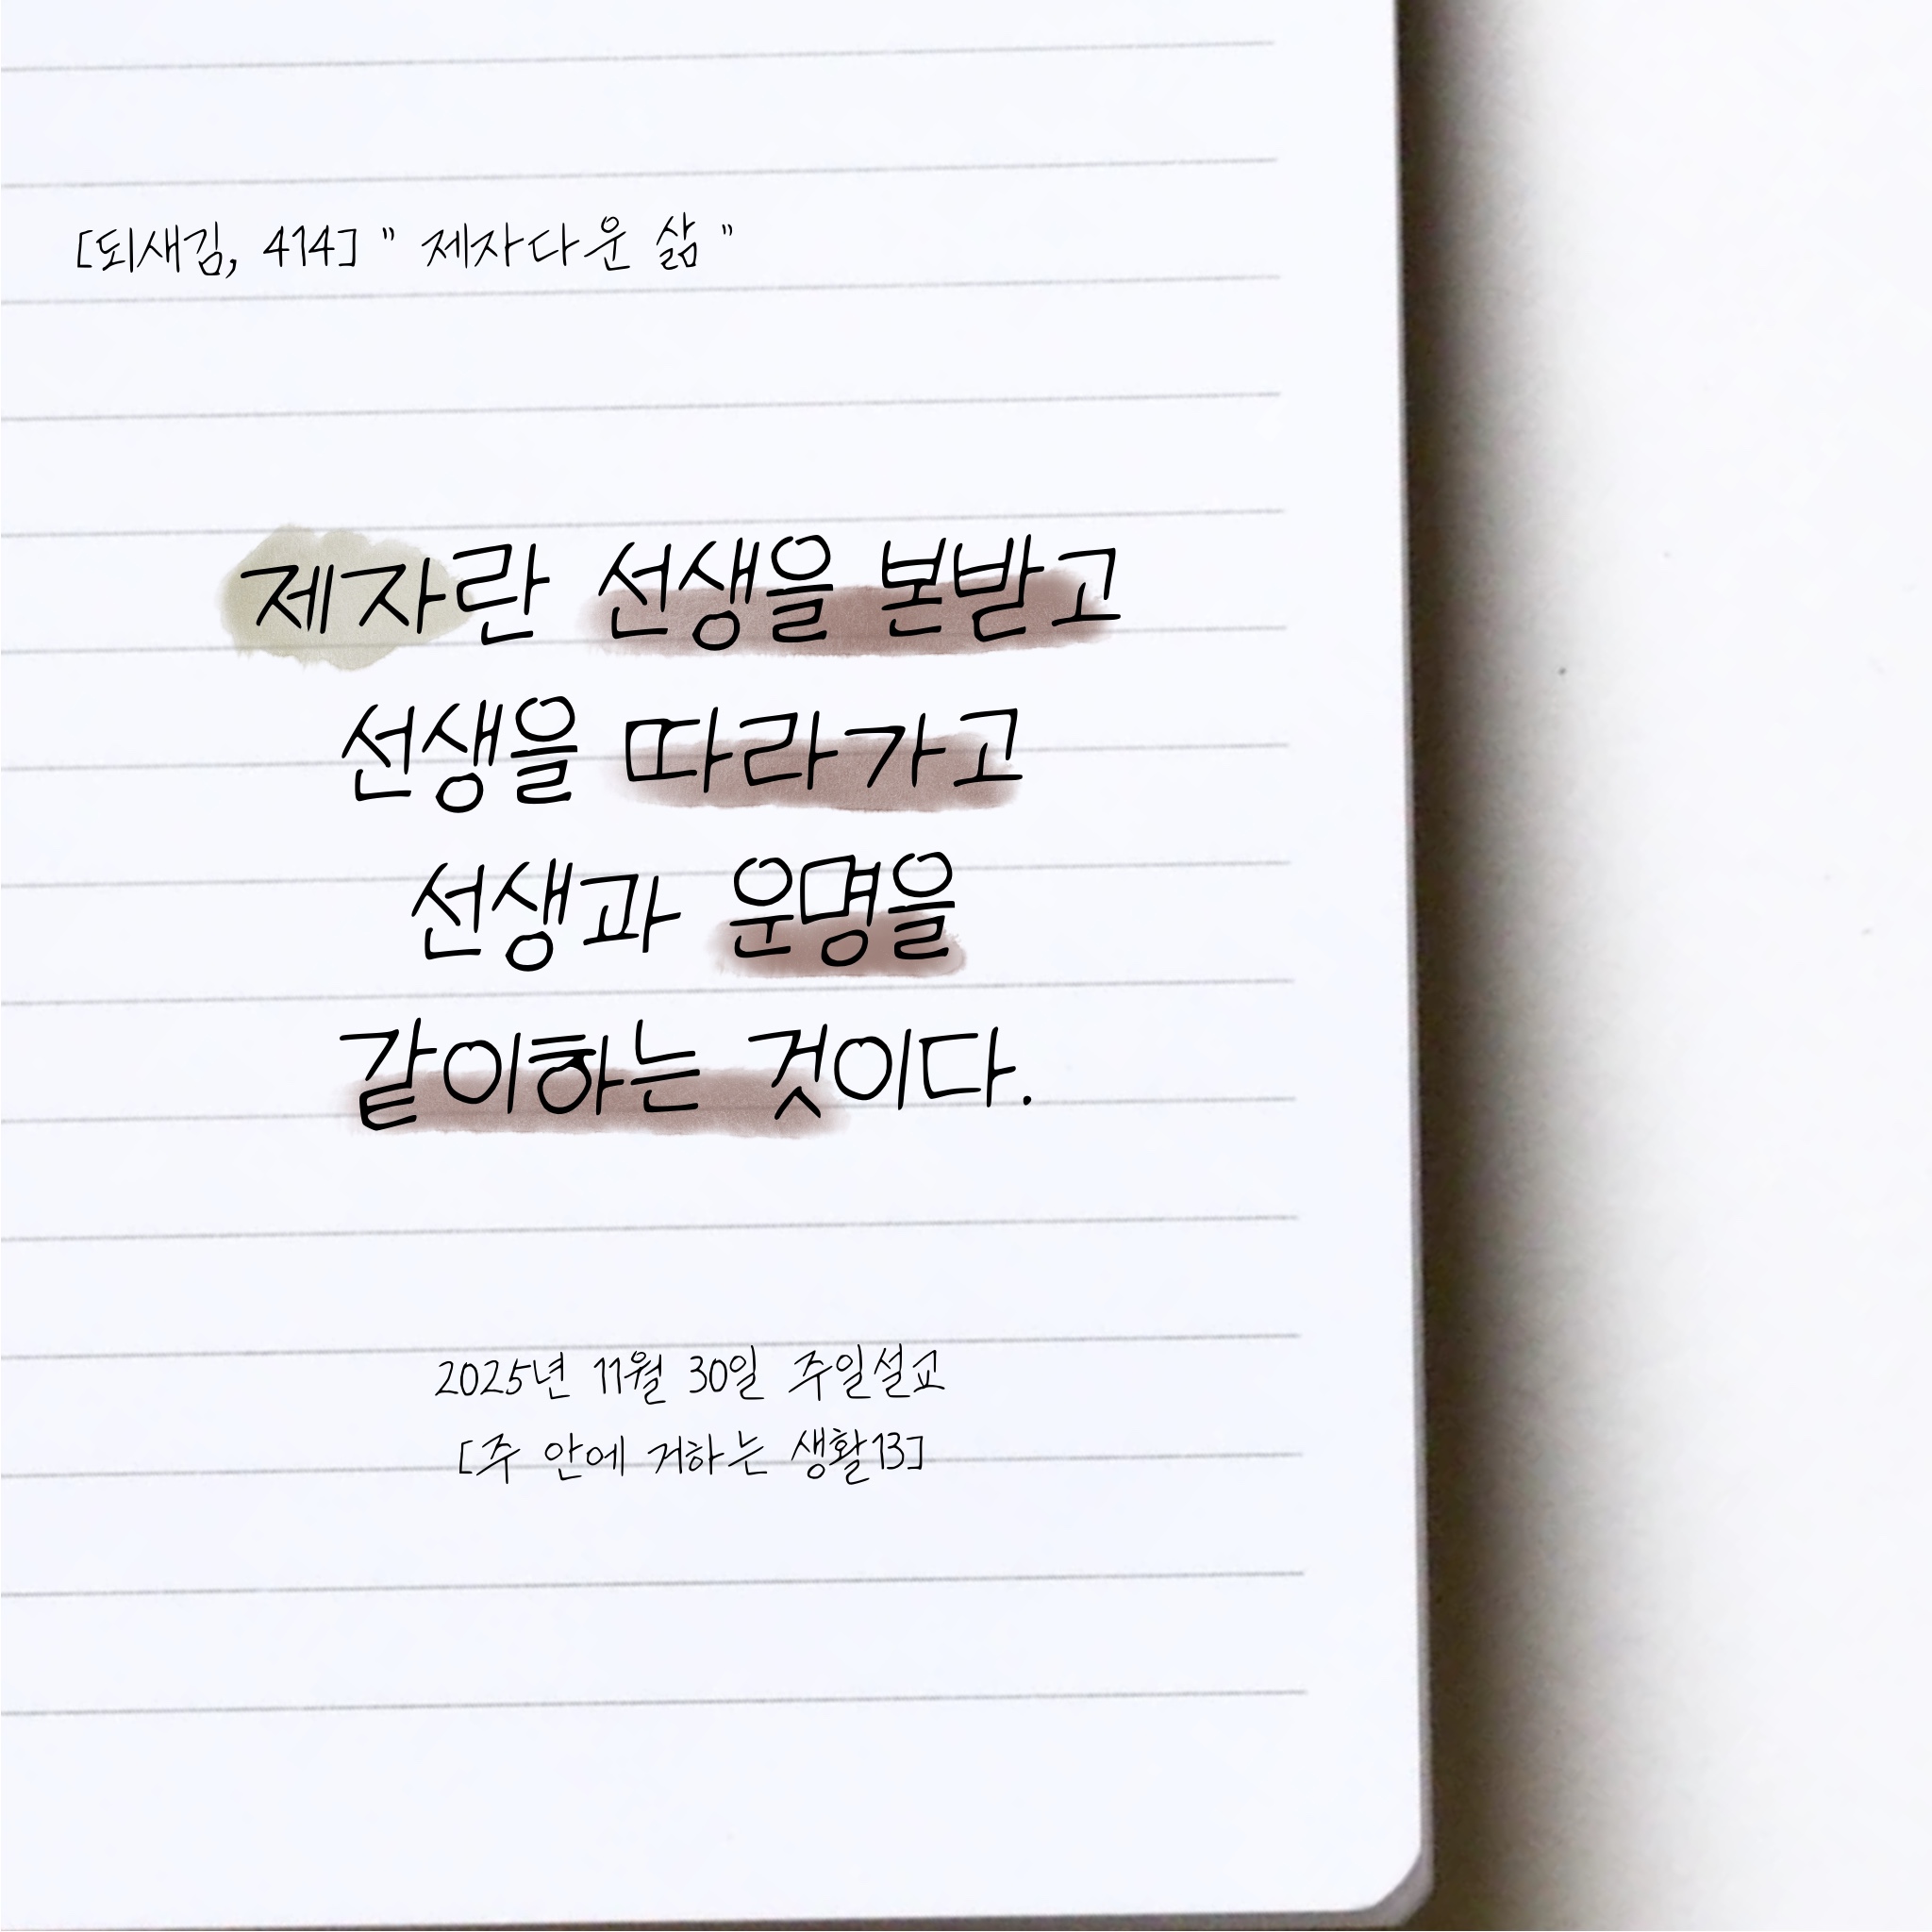 [되새김, 414] " 제자다운 삶 "
제자란 선생을 본받고
선생을 따라가고
선생과 운명을
같이하는 것이다.
2025년 11월 30일 주일설교
[주 안에 거하는 생활13]